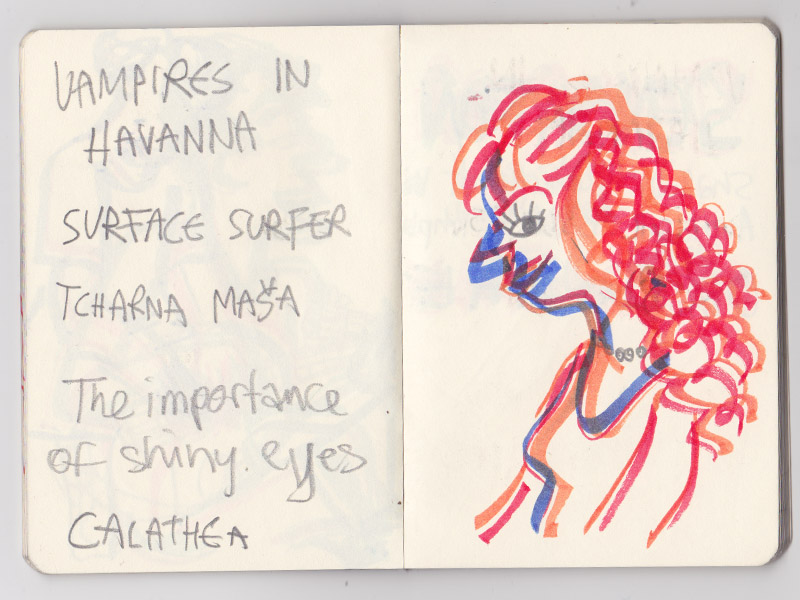 VAMPIRES IN
HAVANNA
SURFACE SURFER
TCHARNA MAŠA
The importance
of shiny. eyes
CALATHEA